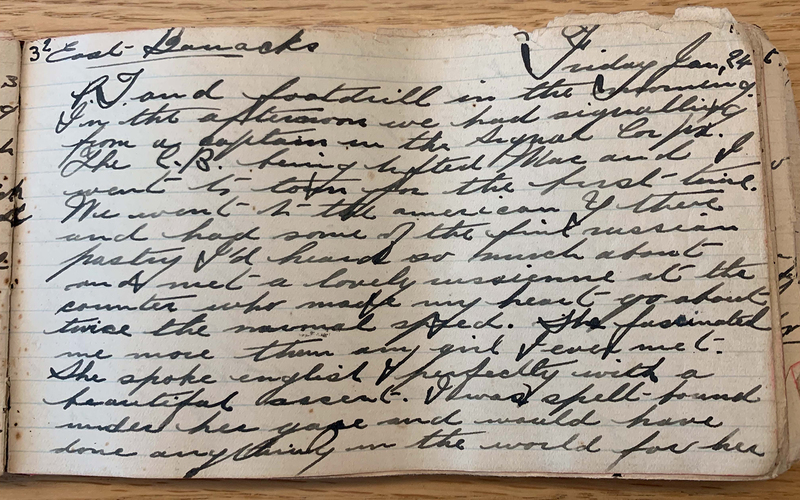 32 East Barracks
Friday Jan, 24
P.T and footdrill in the morning.
In the afternoon we had signalling
from a captain in the Signal Corps.
The C.B. being lifted Mac and I
went to town for the first time.
We went to the american Y there
and had some of the fine russian
pastry I'd heard so much about
and met a lovely russienne at the
counter who made my heart go about
twice the normal speed. She fascinated
me more than any girl I ever met.
She spoke english perfectly with a
beautiful assent. I was spell-bound
under her gaze and would have
done anything in the world for her